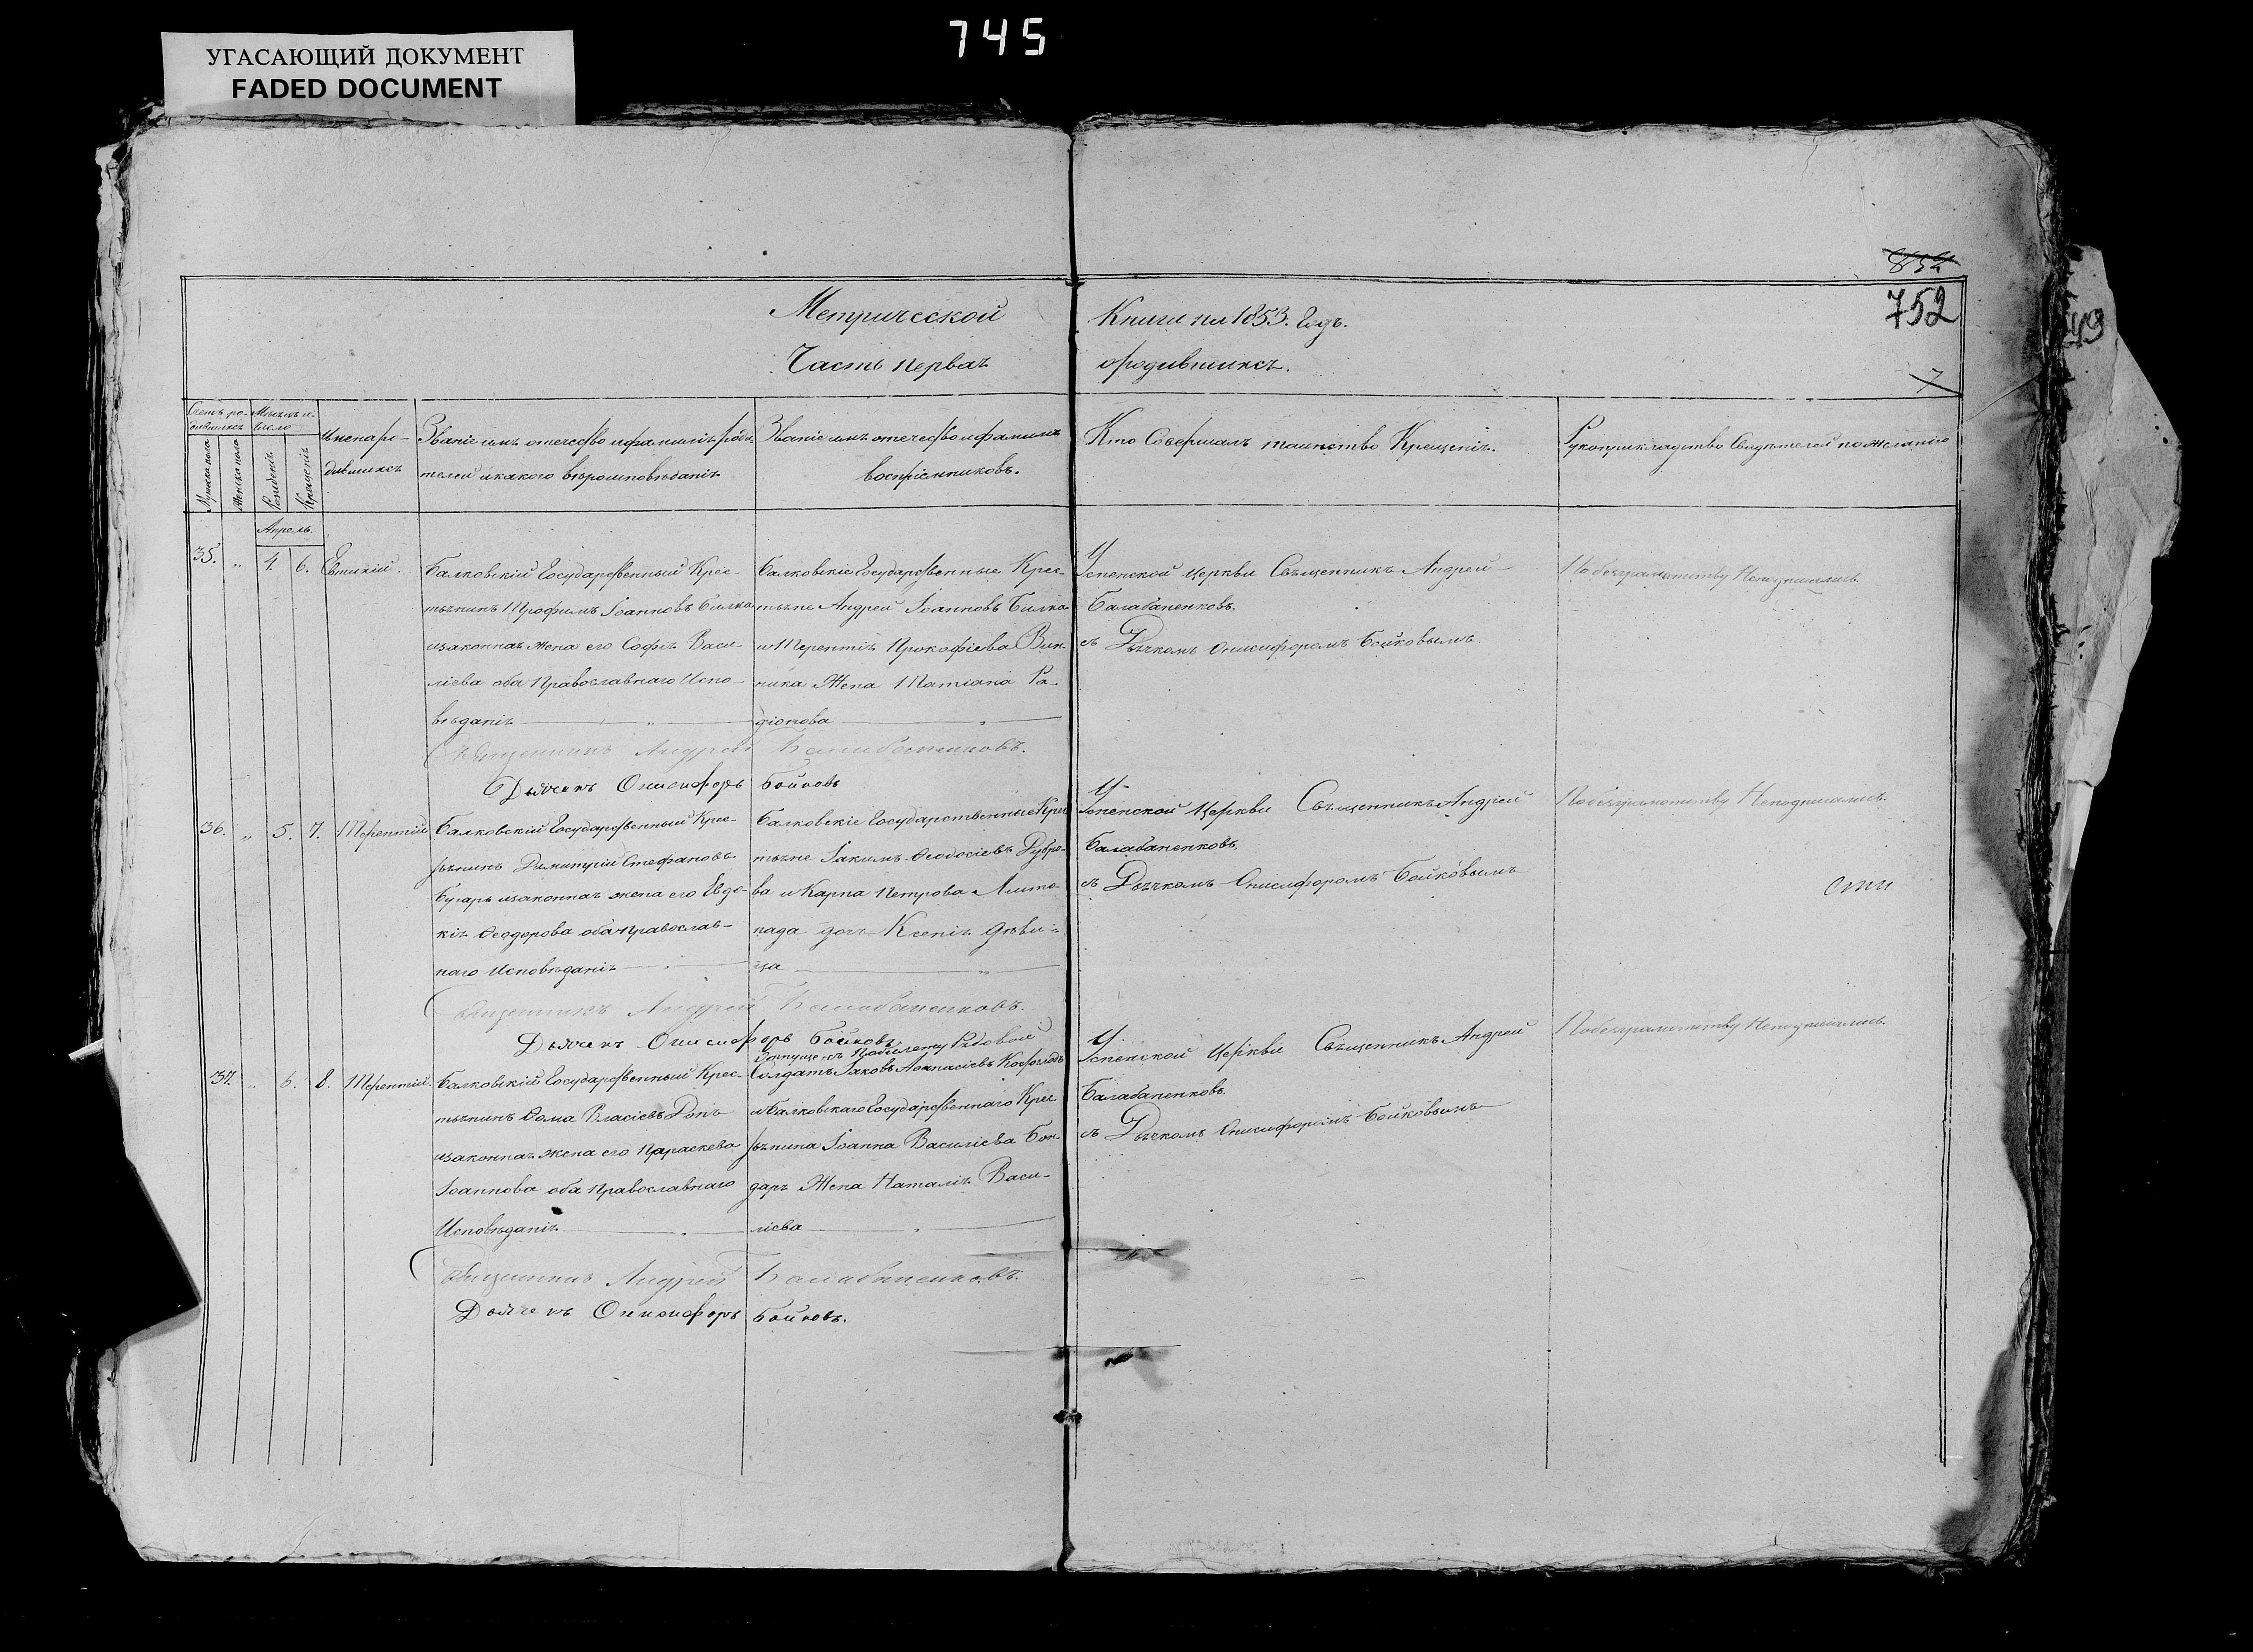 745
УГАСАЮЩИЙ ДОКУМЕНТ
FADED DOCUMENT
852
752
Метрической Книги на 1853. Годъ.
Часть первая о родившихся.
7
Счетъ родившихся
Мѣсяцъ и число
Мужеска пола
Женска пола
Рожденія
Крещенія
Имена родившихся
Званіе имя отчество и фамилія роди-
телей и какого вѣроисповѣданія
Званіе имя отчество и фамилія
воспріемниковъ.
Кто Совершалъ таинство Крещенія.
Рукоприкладство Свидѣтелей по желанію
Апрель.
35. „ 4. 6. Евтихій.
Балковскій Государственный Крес-
тьянинъ Трофимъ Іоанновъ Билка
и законная жена его Софія Васи-
ліева оба Православнаго Испо-
вѣданія
Балковскіе Государственные Крес-
тьяне Андрей Іоанновъ Билка
и Терентія Прокофіева Вин-
ника Жена Татіана Ра-
діонова
Успенской церкви Священникъ Андрей
Балабаненковъ.
съ Дьячкомъ Онисифоромъ Бойковымъ
По безграмотству Неподписались.
Священникъ Андрей Балабаненковъ.
Дьячекъ Онисифоръ Бойковъ
36. „ 5. 7. Терентій
Балковскій Государственный Крес-
тьянинъ Димитрій Стефановъ
Бугаръ и законная жена его Евдо-
кія Феодорова оба Православ-
наго Исповѣданія
Балковскіе Государственные Крес-
тьяне Іакимъ Феодосіевъ Дубро-
ва и Карпа Петрова
дочь Ксенія дѣви-
ца
Успенской Церкви Священникъ Андрей
Балабаненковъ.
съ Дьячкомъ Онисифоромъ Бойковымъ
По безграмотству Неподписались.
Священникъ Андрей Балабаненковъ.
Дьячекъ Онисифоръ Бойковъ
37. „ 6. 8. Терентій.
Балковскій Государственный Крес-
тьянинъ Фома Власіевъ
и законная жена его Параскева
Іоаннова оба Православнаго
Исповѣданія
Рядовой
Солдатъ Іаковъ Афанасіевъ
и Балковскаго Государственнаго Крес-
тьянина Іоанна Василіева Бон-
даря Жена Наталія Васи-
ліева
Успенской Церкви Священникъ Андрей
Балабаненковъ.
съ Дьячкомъ Онисифоромъ Бойковымъ
По безграмотству Неподписались.
Священникъ Андрей Балабаненковъ.
Дьячекъ Онисифоръ Бойковъ.